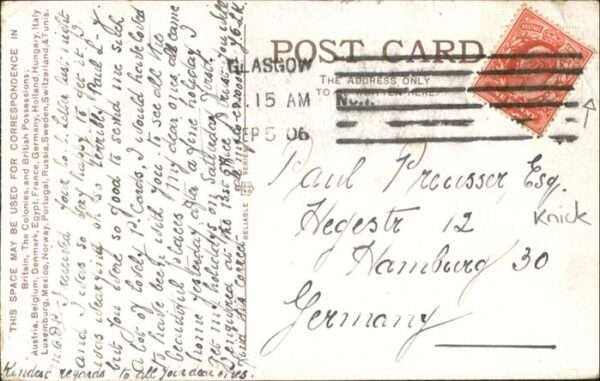 POST CARD.
THE ADDRESS ONLY
TO BE WRITTEN HERE.
GLASGOW
.15 AM
SEP 5 06
No.1.
Paul Preusser, Esq.
Knick
Hegestr 12
Hamburg 30
Germany
THIS SPACE MAY BE USED FOR CORRESPONDENCE IN
Britain, The Colonies, and British Possessions,
Austria, Belgium, Denmark, Egypt, France, Germany, Holland, Hungary, Italy
Luxemburg, Mexico, Norway, Portugal, Russia, Sweden, Switzerland, & Tunis.
I received your letter last night
and I was so very happy to get it. I
was wearying oh so terribly Paul
but you were so good to send me such
a lot of lovely P. Cards. I would have loved
to have been with you to see all the
beautiful places my dear once. all came
home yesterday after a fine holiday. I
get my holidays on Saturday
I enquired at the
find this correct
Kindest regards to all your dear ones.
RELIABLE SERIES